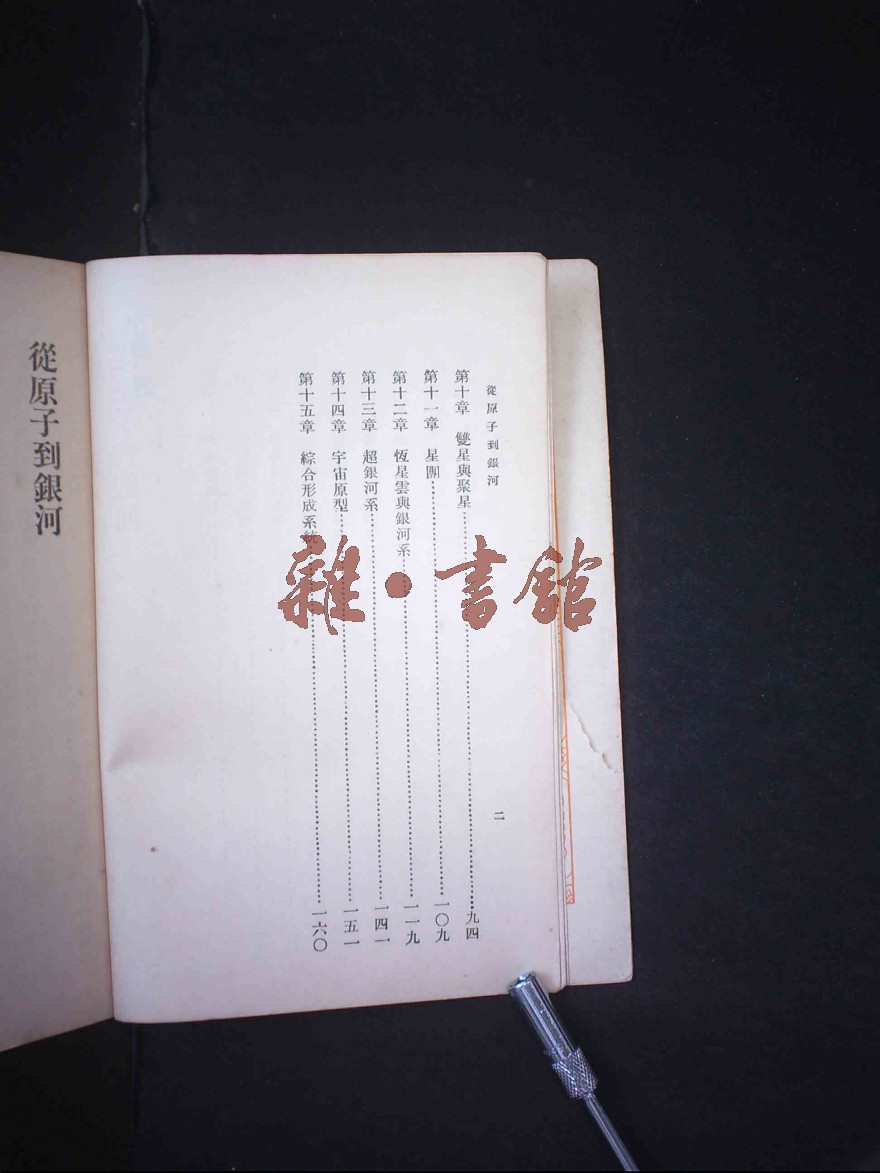 從原子到銀河
二
第十章 雙星與聚星……九四
第十一章 星團……一〇九
第十二章 恆星雲與銀河系……一一九
第十三章 超銀河系……一四一
第十四章 宇宙原型……一五一
第十五章 綜合形成系統……一六〇
從原子到銀河
雜·書館